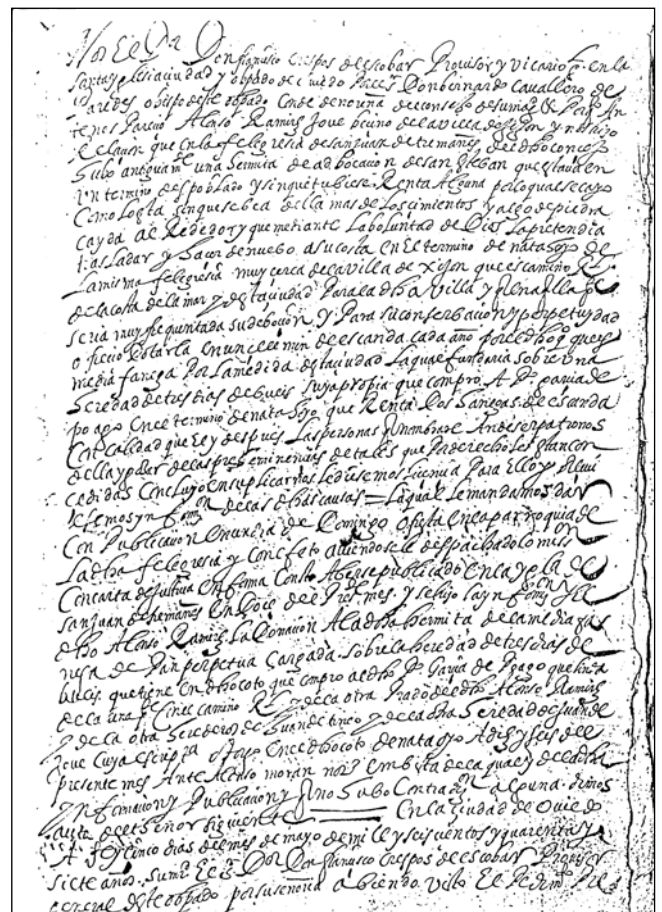 Nos El Dor Don francisco crespos de escobar Provisor y vicario gl en la
santa yglesia ciudad y obpado de oviedo Por el Sr Don bernardo cavallero de
Paredes obispo deste obpado conde de noruña del consejo de su magd &c Por q An
te nos Parecio Alonso Ramirez Jove vecino de la villa de gijon y nos hizo
Relacion que en la felegresia de san juan de tremañes del dho concejo
Hubo antiguamte una hermita de adbocacion de san esteban que estava en
Un termino despoblado y sin que tubiese Renta Alguna por lo qual se cayo
Como lo esta sin que se bea della mas de los cimientos y algo de piedra
cayda Al Rededor y que mediante La boluntad de Dios La pretendia
trasladar y hacer de nuebo a su costa en El termino de nataoyo de
La misma felegresia muy cerca de la villa de xijon que es camino Rl
de la costa de la mar y desta ciudad Para la dha villa y en aquella
seria muy frequentada su debocion y Para su conserbacion y perpetuydad
ofrecio dotarla en un celemin de escanda cada año por el dho que es
media fanega Por la medida desta ciudad La qual fundaria sobre una
heredad de tres dias de bueis suya propia que compro A Po garcia de
poago en el termino de natahoyo que Renta Dos hanegas de escanda
Con calidad que el y despues Las personas q nombrare An de ser patronos
della y goçar de las preheminencias de tales que Por derecho les estan con
cedidas Concluyo en suplicarnos le diesemos licencia Para Ello y Reciui
esemos ynfon de las dhas causas = La qual le mandamos dar
Con Publicacion en un dia de Domingo o fiesta en la parroquia de
La dha felegresia y con efeto auiendosele despachado comision
Con carta de justicia en forma Consto Aberse publicado en la yglesia de
san juan de tremañes En doce del Presente mes y se hizo la ynfon y el
dho Alonso Ramirez La Donacion A la dha hermita de la media fa
nega de Pan perpetua Cargada sobre la heredad de tres dias de
bueis que tiene en dho coto que compro al dho Po Garcia de Poago que linda
de la una pte con el camino Rl y de la otra Prado del dho Alonso Ramirez
y de la otra herederos de Juan de cifuentes y de la otra heredad de Juan de
Jove Cuya escriptura otorgo en el dho coto de nataoyo A diez y seis del
presente mes Ante Alonso moran noto En bista de la qual y de la dha
ynformacion y Publicacion y q no hubo Contradicion alguna dimos
auto del tenor siguiente = En la ciudad de Oviedo
A veynte y cinco dias del mes de mayo de mill y seis cientos y quarenta y
siete años su mrd El Sr Dor Don francisco crespos de escobar Provisor
general deste obpado por su señoria abiendo visto El Pedimto